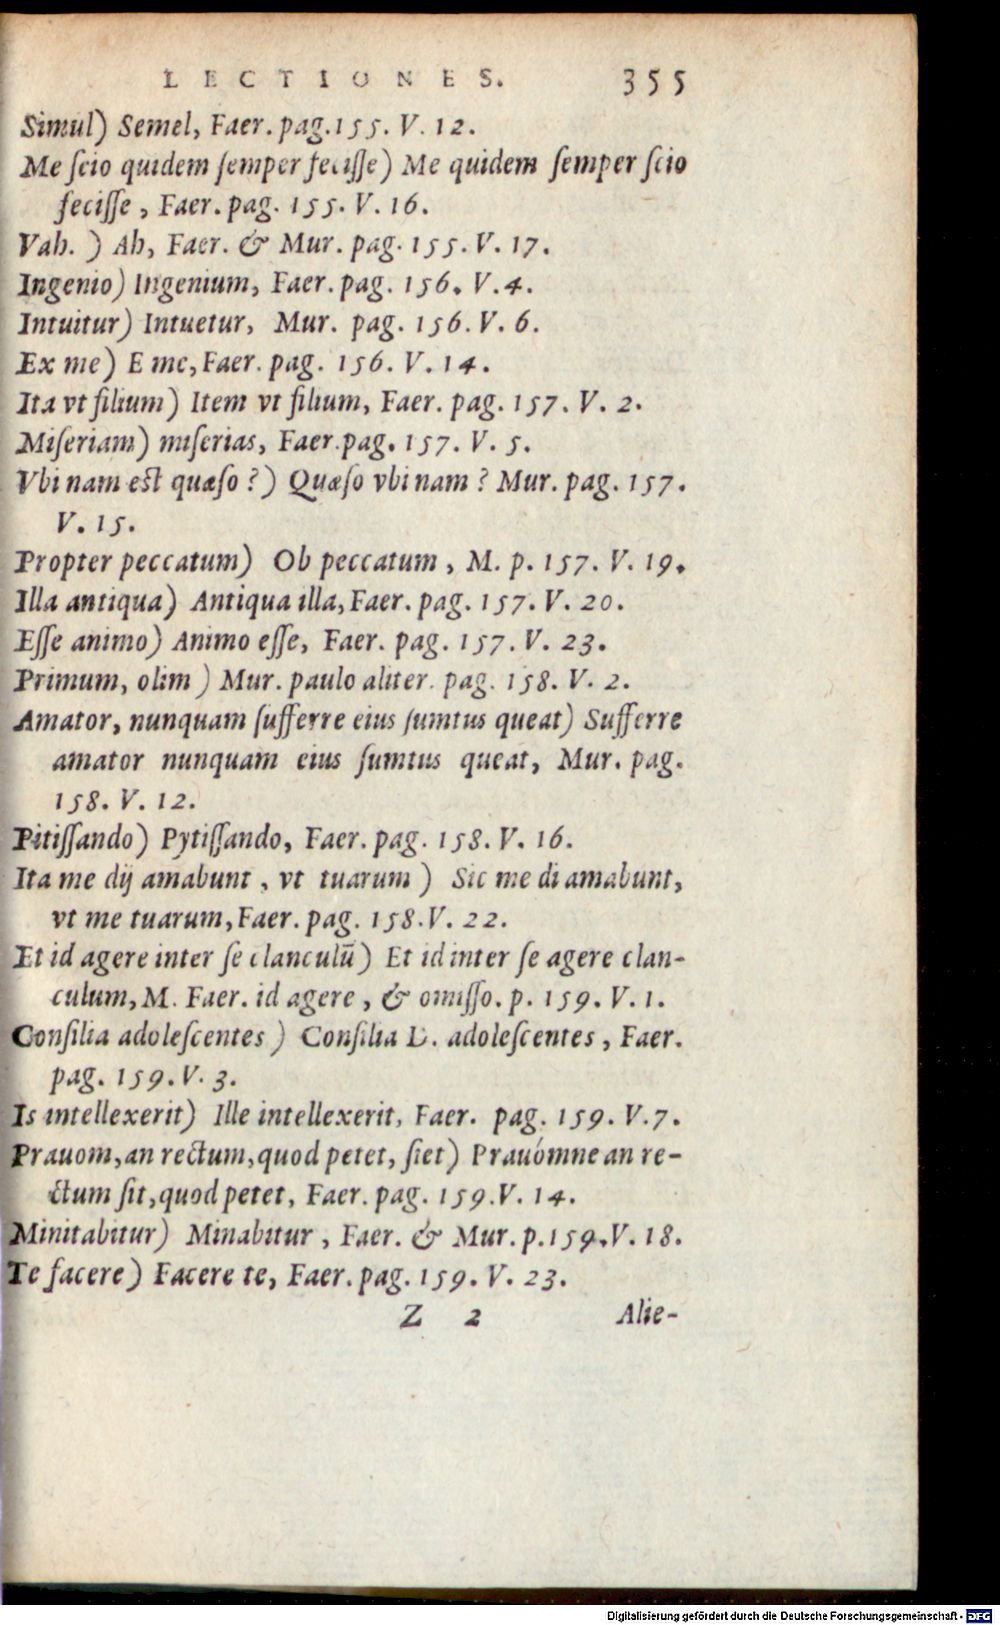 LECTIONES. 355
Simul) Semel, Faer. pag. 155. V. 12.
Me ſcio quidem ſemper feciſſe) Me quidem ſemper ſcio
feciſſe, Faer. pag. 155. V. 16.
Vah.) Ah, Faer. & Mur. pag. 155. V. 17.
Ingenio) Ingenium, Faer. pag. 156. V. 4.
Intuitur) Intuetur, Mur. pag. 156. V. 6.
Ex me) E me, Faer. pag. 156. V. 14.
Ita vt filium) Item vt filium, Faer. pag. 157. V. 2.
Miſeriam) miſerias, Faer. pag. 157. V. 5.
Vbi nam eſt quæſo?) Quæſo vbi nam? Mur. pag. 157.
V. 15.
Propter peccatum) Ob peccatum, M. p. 157. V. 19.
Illa antiqua) Antiqua illa, Faer. pag. 157. V. 20.
Eſſe animo) Animo eſſe, Faer. pag. 157. V. 23.
Primum, olim) Mur. paulo aliter. pag. 158. V. 2.
Amator, nunquam ſufferre eius ſumtus queat) Sufferre
amator nunquam eius ſumtus queat, Mur. pag.
158. V. 12.
Pitiſſando) Pytiſſando, Faer. pag. 158. V. 16.
Ita me dij amabunt, vt tuarum) Sic me di amabunt,
vt me tuarum, Faer. pag. 158. V. 22.
Et id agere inter ſe clanculū) Et id inter ſe agere clan-
culum, M. Faer. id agere, & omiſſo. p. 159. V. 1.
Conſilia adoleſcentes) Conſilia D. adoleſcentes, Faer.
pag. 159. V. 3.
Is intellexerit) Ille intellexerit, Faer. pag. 159. V. 7.
Prauom, an rectum, quod petet, ſiet) Prauómne an re-
ctum ſit, quod petet, Faer. pag. 159. V. 14.
Minitabitur) Minabitur, Faer. & Mur. p. 159. V. 18.
Te facere) Facere te, Faer. pag. 159. V. 23.
Z 2 Alie-
Digitalisierung gefördert durch die Deutsche Forschungsgemeinschaft - DFG